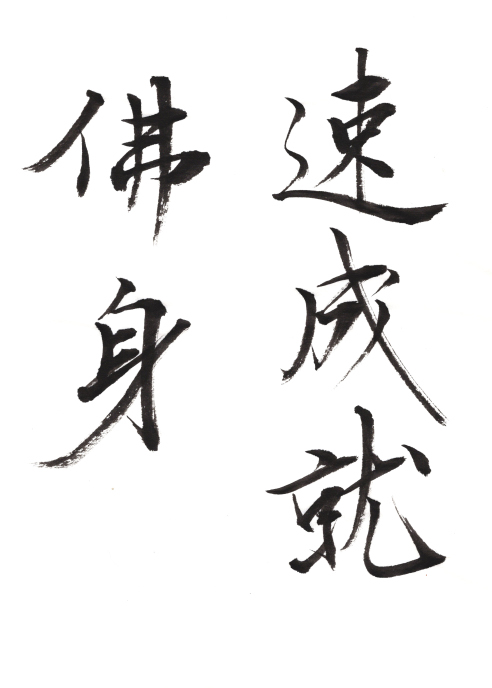 速成就
佛身